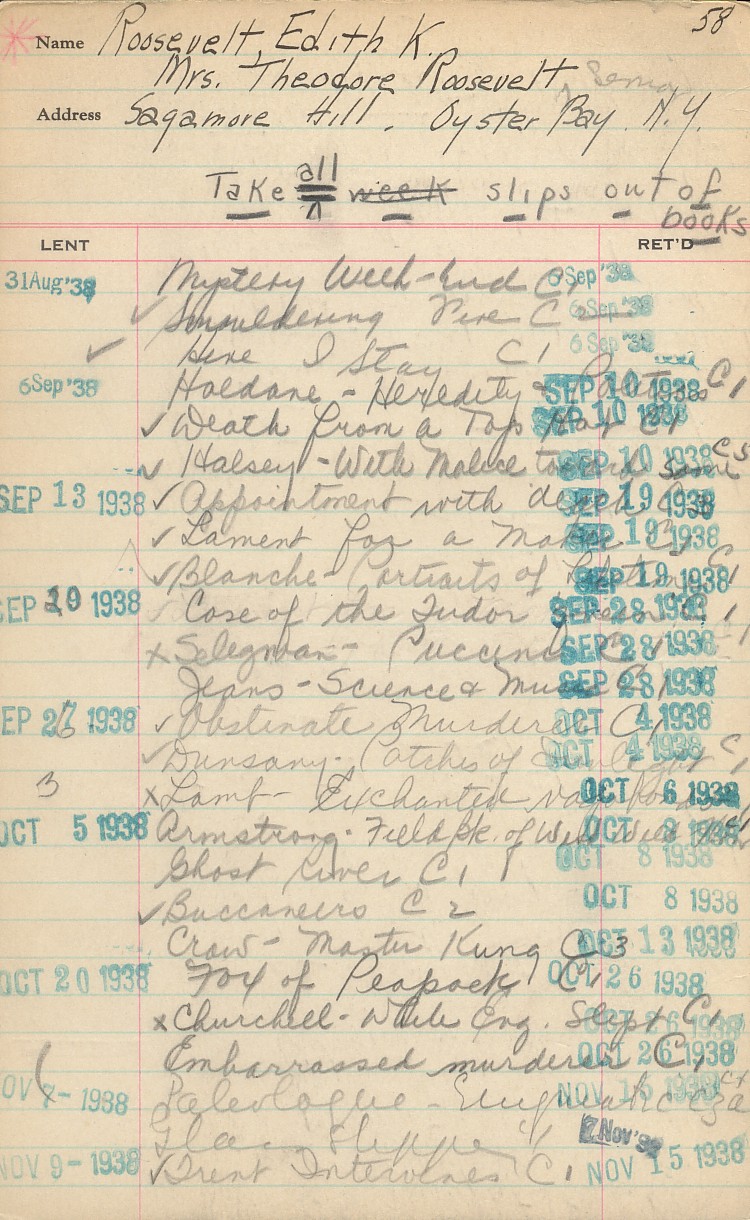 58
Name Roosevelt, Edith K.
Mrs. Theodore Roosevelt Senior
Address Sagamore Hill. Oyster Bay. N.Y.
Take all week slips out of books
LENT RET'D
31 Aug '38 Mystery Week-End C1 6 Sep '38
✓ Smouldering Fire C2 6 Sep '38
✓ Here I Stay C1 6 Sep '38
6 Sep '38 Haldane - Heredity & Politics C1 SEP 10 1938
✓ Death from a Top Hat C1 SEP 10 1938
✓ Halsey - With Malice toward some C5 SEP 10 1938
SEP 13 1938 ✓ Appointment with death SEP 19 1938
✓ Lament for a Maker C1 SEP 19 1938
✓ Blanche - Portraits of C1 SEP 19 1938
SEP 20 1938 Case of the Tudor Queen C1 SEP 28 1938
x Seligman - Puccini C1 SEP 28 1938
Jeans - Science & Music C1 SEP 28 1938
SEP 27 1938 ✓ Obstinate Murderer C1 OCT 4 1938
✓ Dunsany - Patches of Sunlight C1 OCT 4 1938
3 x Lamb - Enchanted vagabonds OCT 6 1938
OCT 5 1938 Armstrong - Field Bk. of West Wild OCT 8 1938
Ghost River C1 OCT 8 1938
✓ Buccaneers C2 OCT 8 1938
Crow - Master Kung C3 OCT 13 1938
OCT 20 1938 Fox of Peapack C1 OCT 26 1938
x Churchill - While Eng. Slept C1 OCT 26 1938
Embarrassed murderer C1 OCT 26 1938
NOV 7 - 1938 Paleologue - Enigmatic Czar C1 NOV 15 1938
Nov '38
NOV 9 - 1938 ✓ Trent Intervenes C1 NOV 15 1938